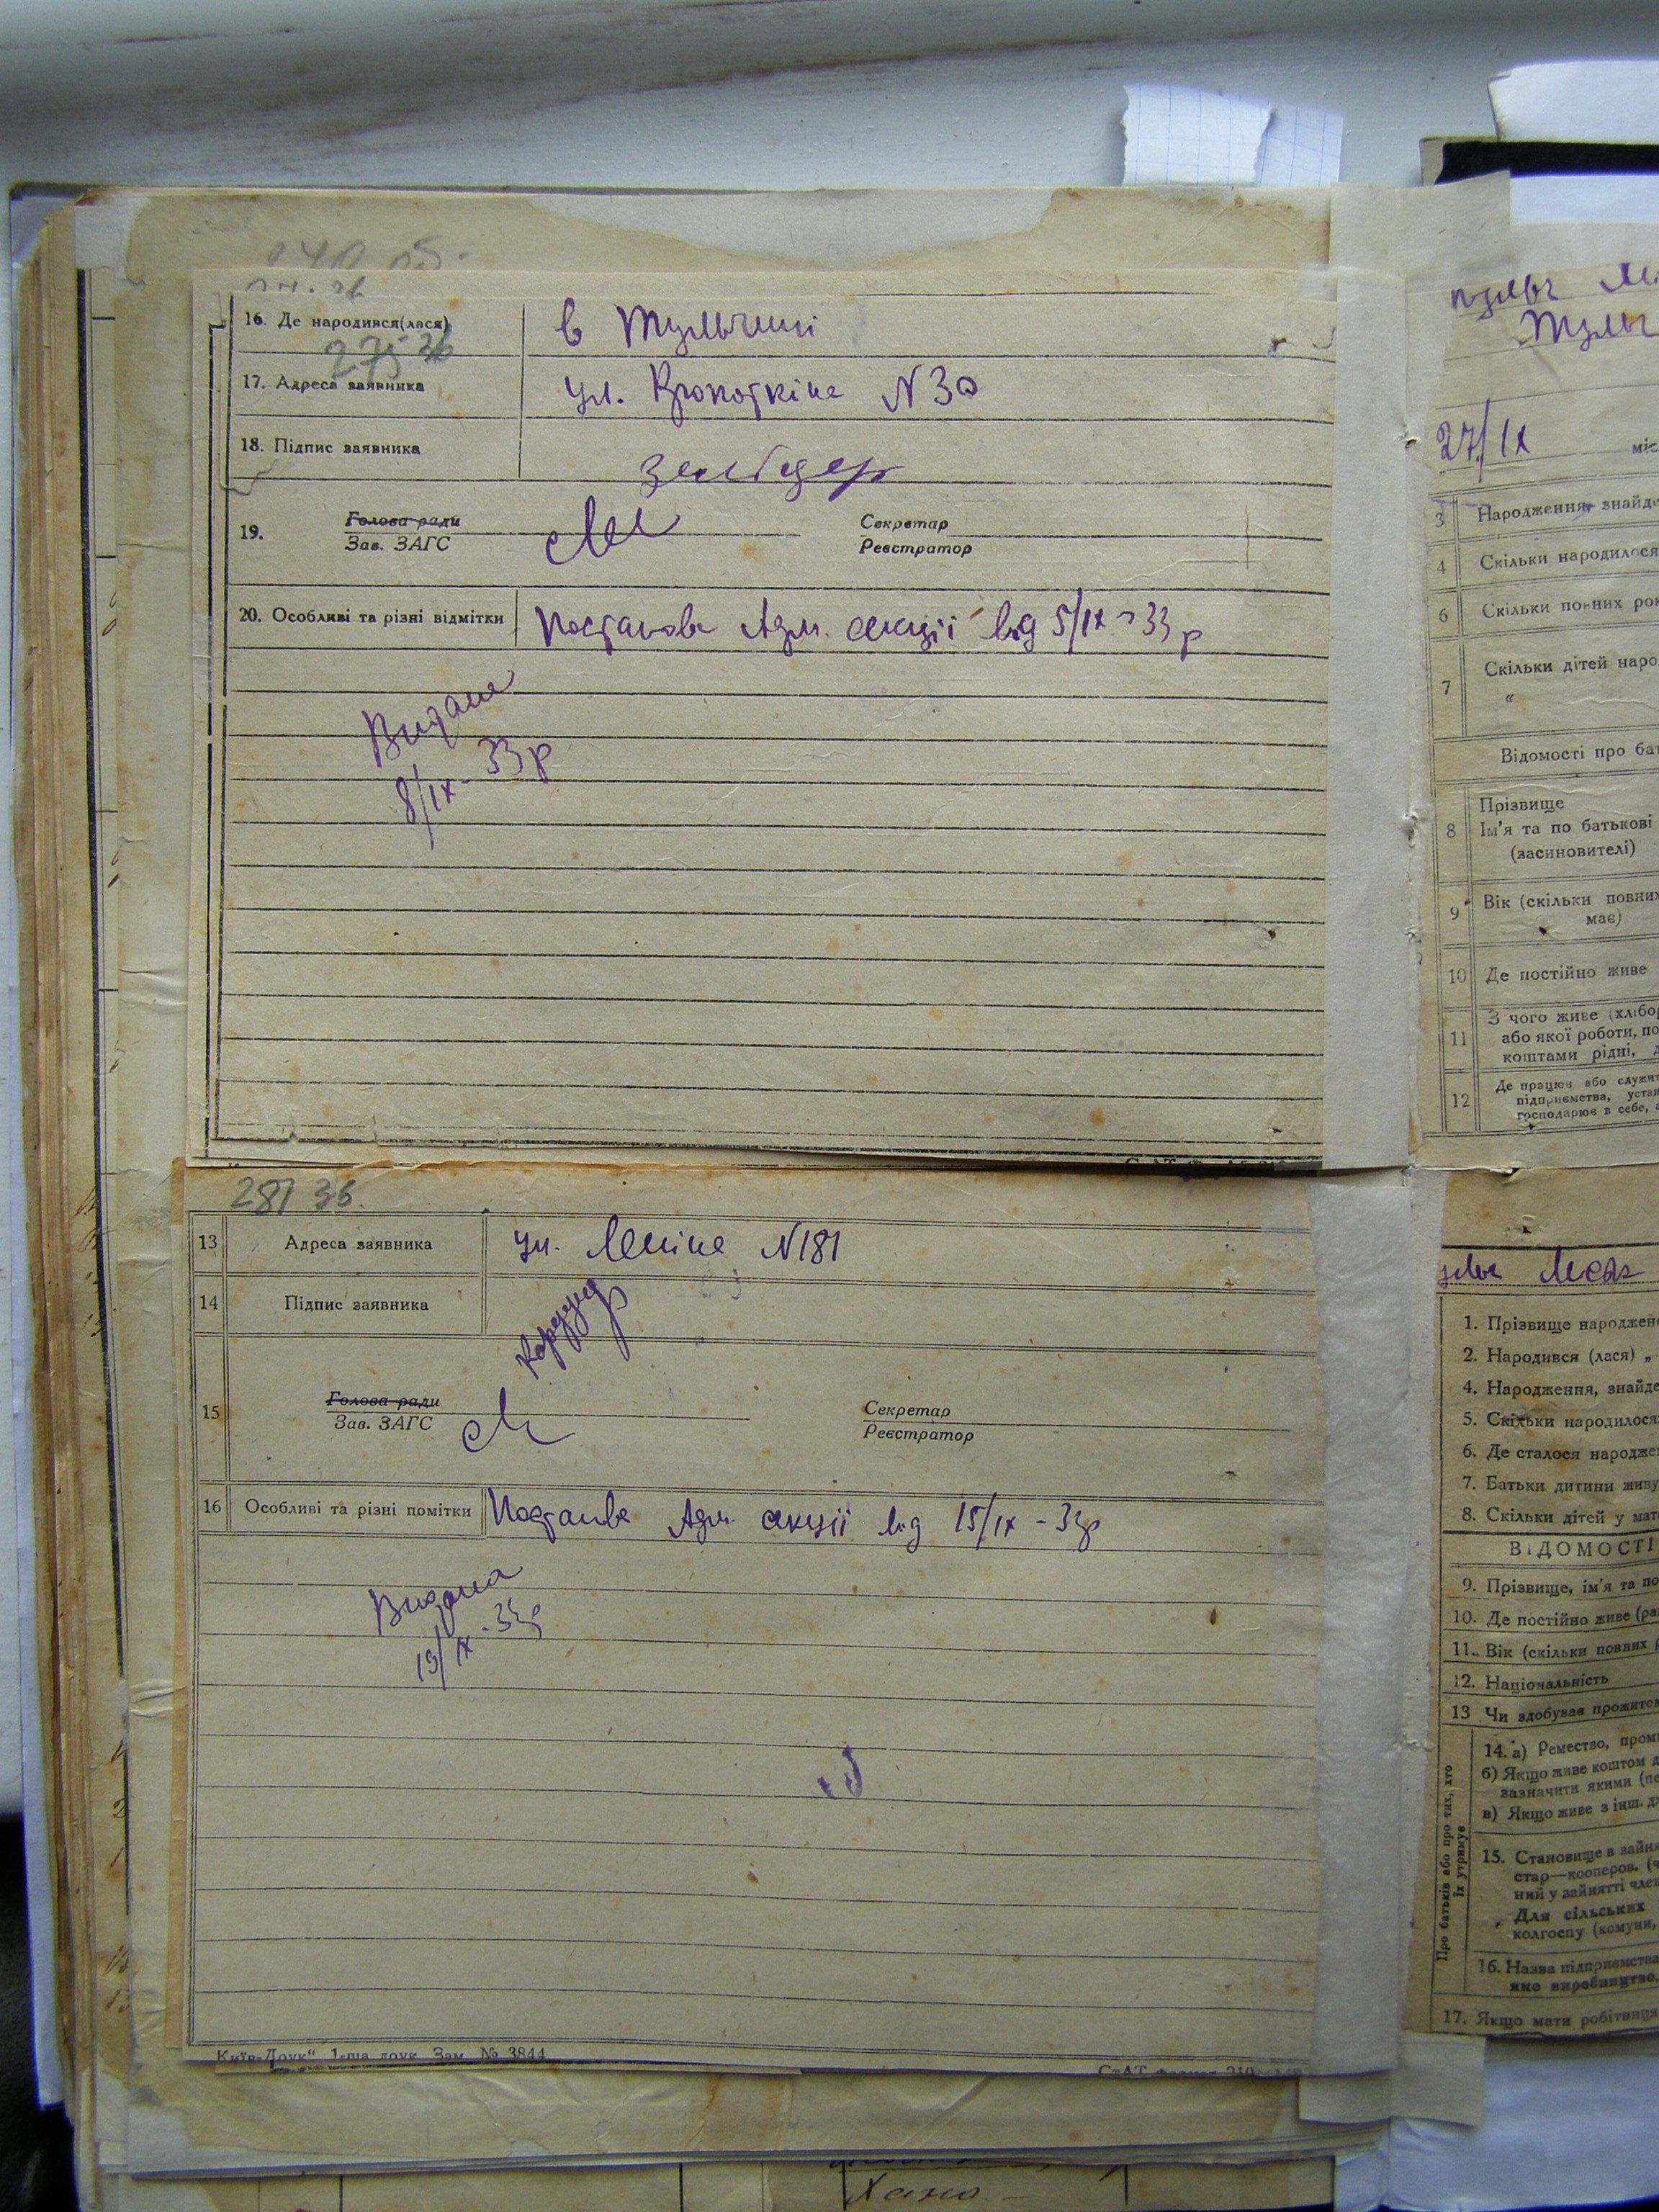 16. Де народився(лася)
в Тульчині
275 36
17. Адреса заявника
ул. Кропоткіна N 30
18. Підпис заявника
19.
Голова ради
Зав. ЗАГС
Секретар
Реєстратор
20. Особливі та різні відмітки
Постанова Адм. секції від 5/IX-33 р
Видане
8/IX-33р
287 36.
13 Адреса заявника
ул. Леніна N181
14 Підпис заявника
15
Голова ради
Зав. ЗАГС
Секретар
Реєстратор
16 Особливі та різні помітки
Постанова Адм. секції від 15/IX-33р
Видана
19/IX-33р
Київ-Друк" 1-ша друк. Зам. № 3844
27/IX
міс
3 Народження, знайде
4 Скільки народилося
6 Скільки повних рок
7 Скільки дітей наро
"
Відомості про бат
8 Прізвище
Ім'я та по батькові
(засиновителі)
9 Вік (скільки повних
має)
10 Де постійно живе
11 З чого живе (хлібор
або якої роботи, по
коштами рідні, д
12 Де працює або служит
підприємства, устан
господарює в себе, а
1. Прізвище народжено
2. Народився (лася) "
4. Народження, знайде
5. Скільки народилося
6. Де сталося народжен
7. Батьки дитини живу
8. Скільки дітей у мат
ВІДОМОСТІ
9. Прізвище, ім'я та по
10. Де постійно живе (ра
11. Вік (скільки повних р
12. Національність
13 Чи здобував прожиток
Про батьків або про тих, хто
їх утримує
14. а) Ремество, пром
б) Якщо живе коштом д
зазначити якими (пе
в) Якщо живе з інш. д
15. Становище в зайня
стар—кооперов. (ч
ний у зайнятті член
Для сільських
колгоспу (комуни,
16. Назва підприємства
яке виробництво,
17. Якщо мати робітниця
Хана